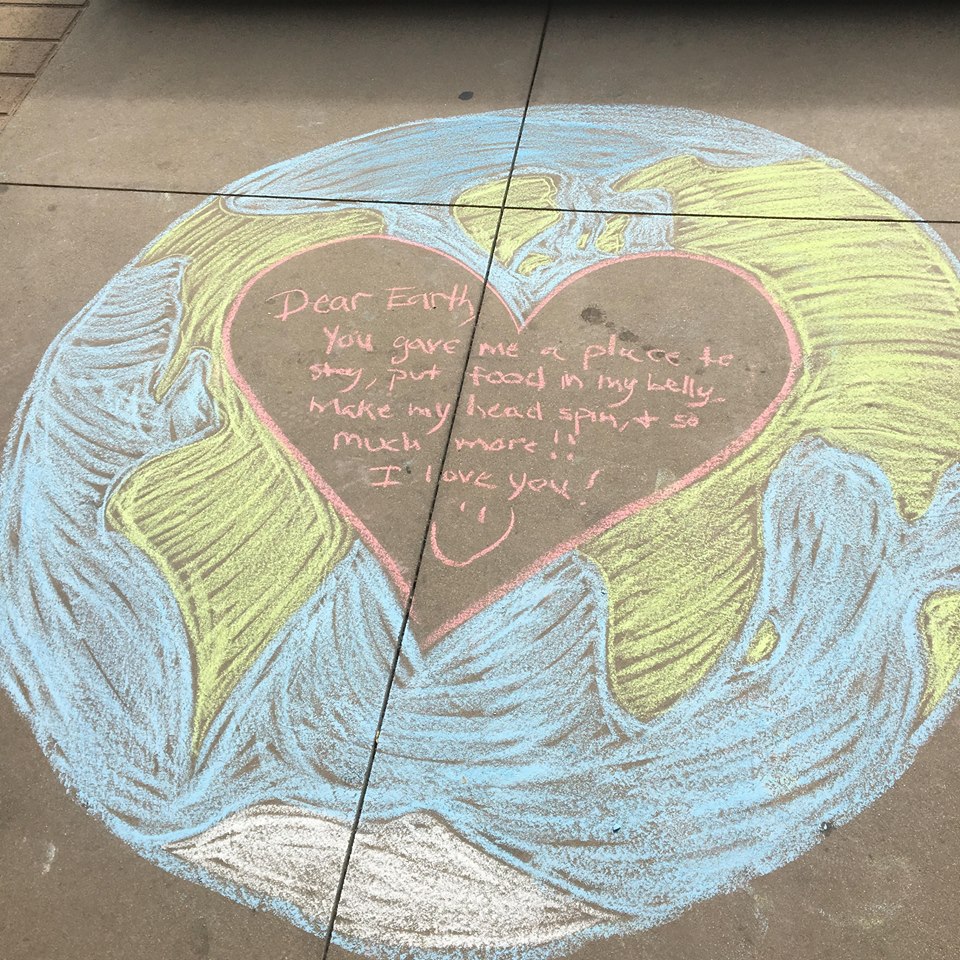 Dear Earth
You gave me a place to
stay, put food in my belly.
Make my head spin, + so
much more!!
I love you!